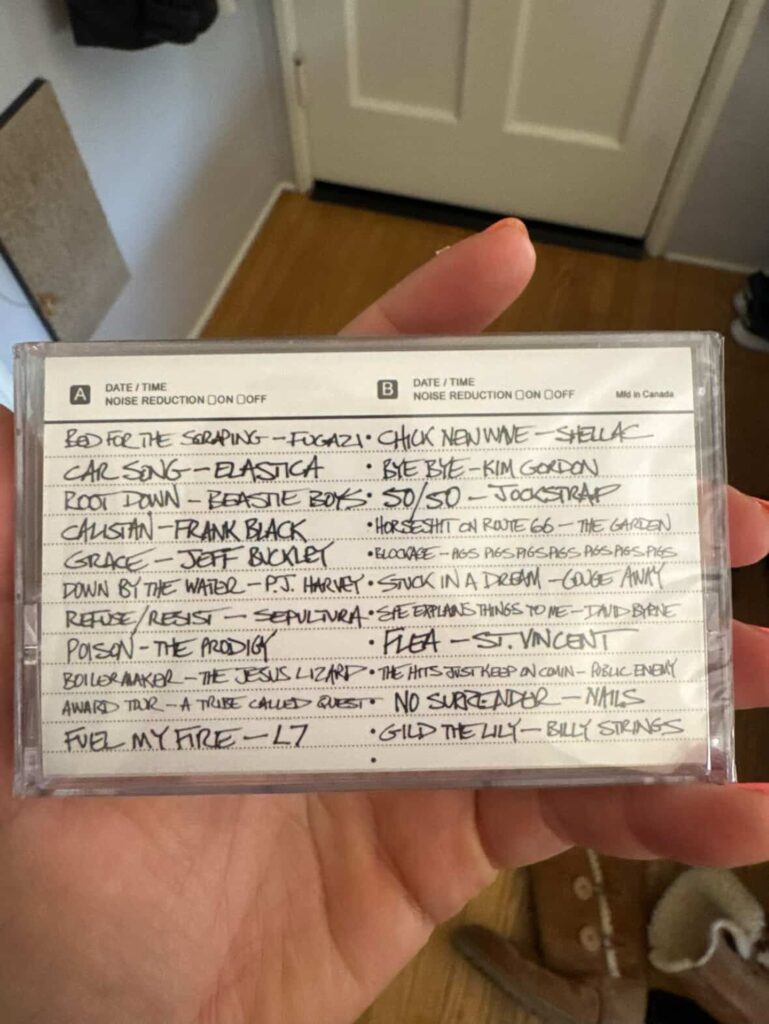 A DATE / TIME
NOISE REDUCTION ON OFF
B DATE / TIME
NOISE REDUCTION ON OFF
Mfd in Canada
BED FOR THE SCRAPING - FUGAZI
CAR SONG - ELASTICA
ROOT DOWN - BEASTIE BOYS
CALISTAN - FRANK BLACK
GRACE - JEFF BUCKLEY
DOWN BY THE WATER - P.J. HARVEY
REFUSE/RESIST - SEPULTURA
POISON - THE PRODIGY
BOILERMAKER - THE JESUS LIZARD
AWARD TOUR - A TRIBE CALLED QUEST
FUEL MY FIRE - L7
• CHICK NEW WAVE - SHELLAC
• BYE BYE - KIM GORDON
• 50/50 - JOCKSTRAP
• HORSESHIT ON ROUTE 66 - THE GARDEN
• BLOCKAGE - PIGS PIGS PIGS PIGS PIGS PIGS PIGS
• STUCK IN A DREAM - GOUGE AWAY
• SHE EXPLAINS THINGS TO ME - DAVID BYRNE
• FLEA - ST. VINCENT
• THE HITS JUST KEEP ON COMIN - PUBLIC ENEMY
• NO SURRENDER - NAILS
• GILD THE LILY - BILLY STRINGS